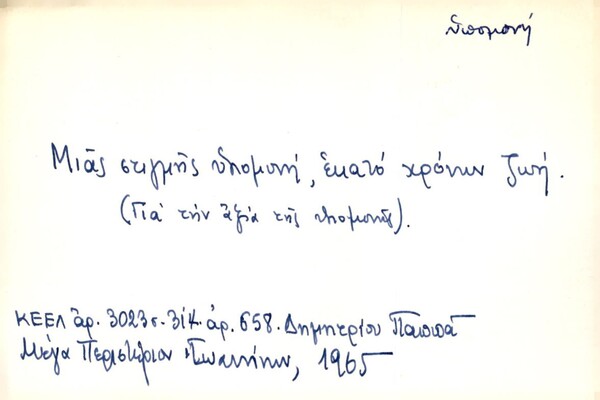 ὑπομονή
Μιᾶς στιγμῆς ὑπομονή, ἑκατό χρόνων ζωή.
(Γιά τήν ἀξία τῆς ὑπομονῆς).
ΚΕΕΛ ἀρ. 3023 σ. 314. ἀρ. 658. Δημητρίου Παππᾶ
Μέγα Περιστέριον Ἰωαννίνων, 1965